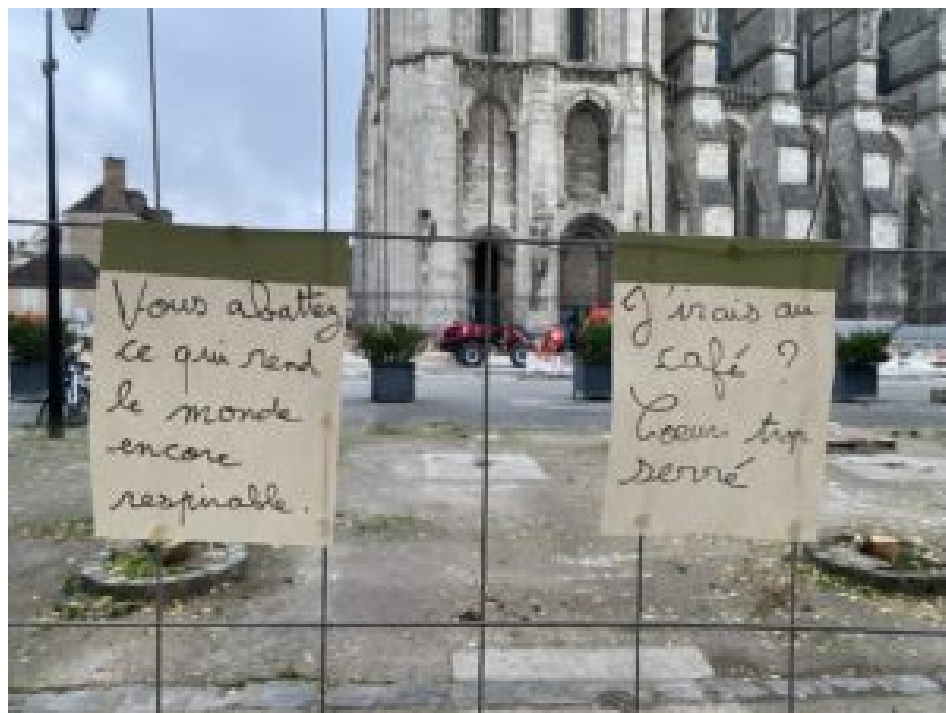 Vous abattez
ce qui rend
le monde
encore
respirable.
J'irais au
café ?
Coeur trop
serré